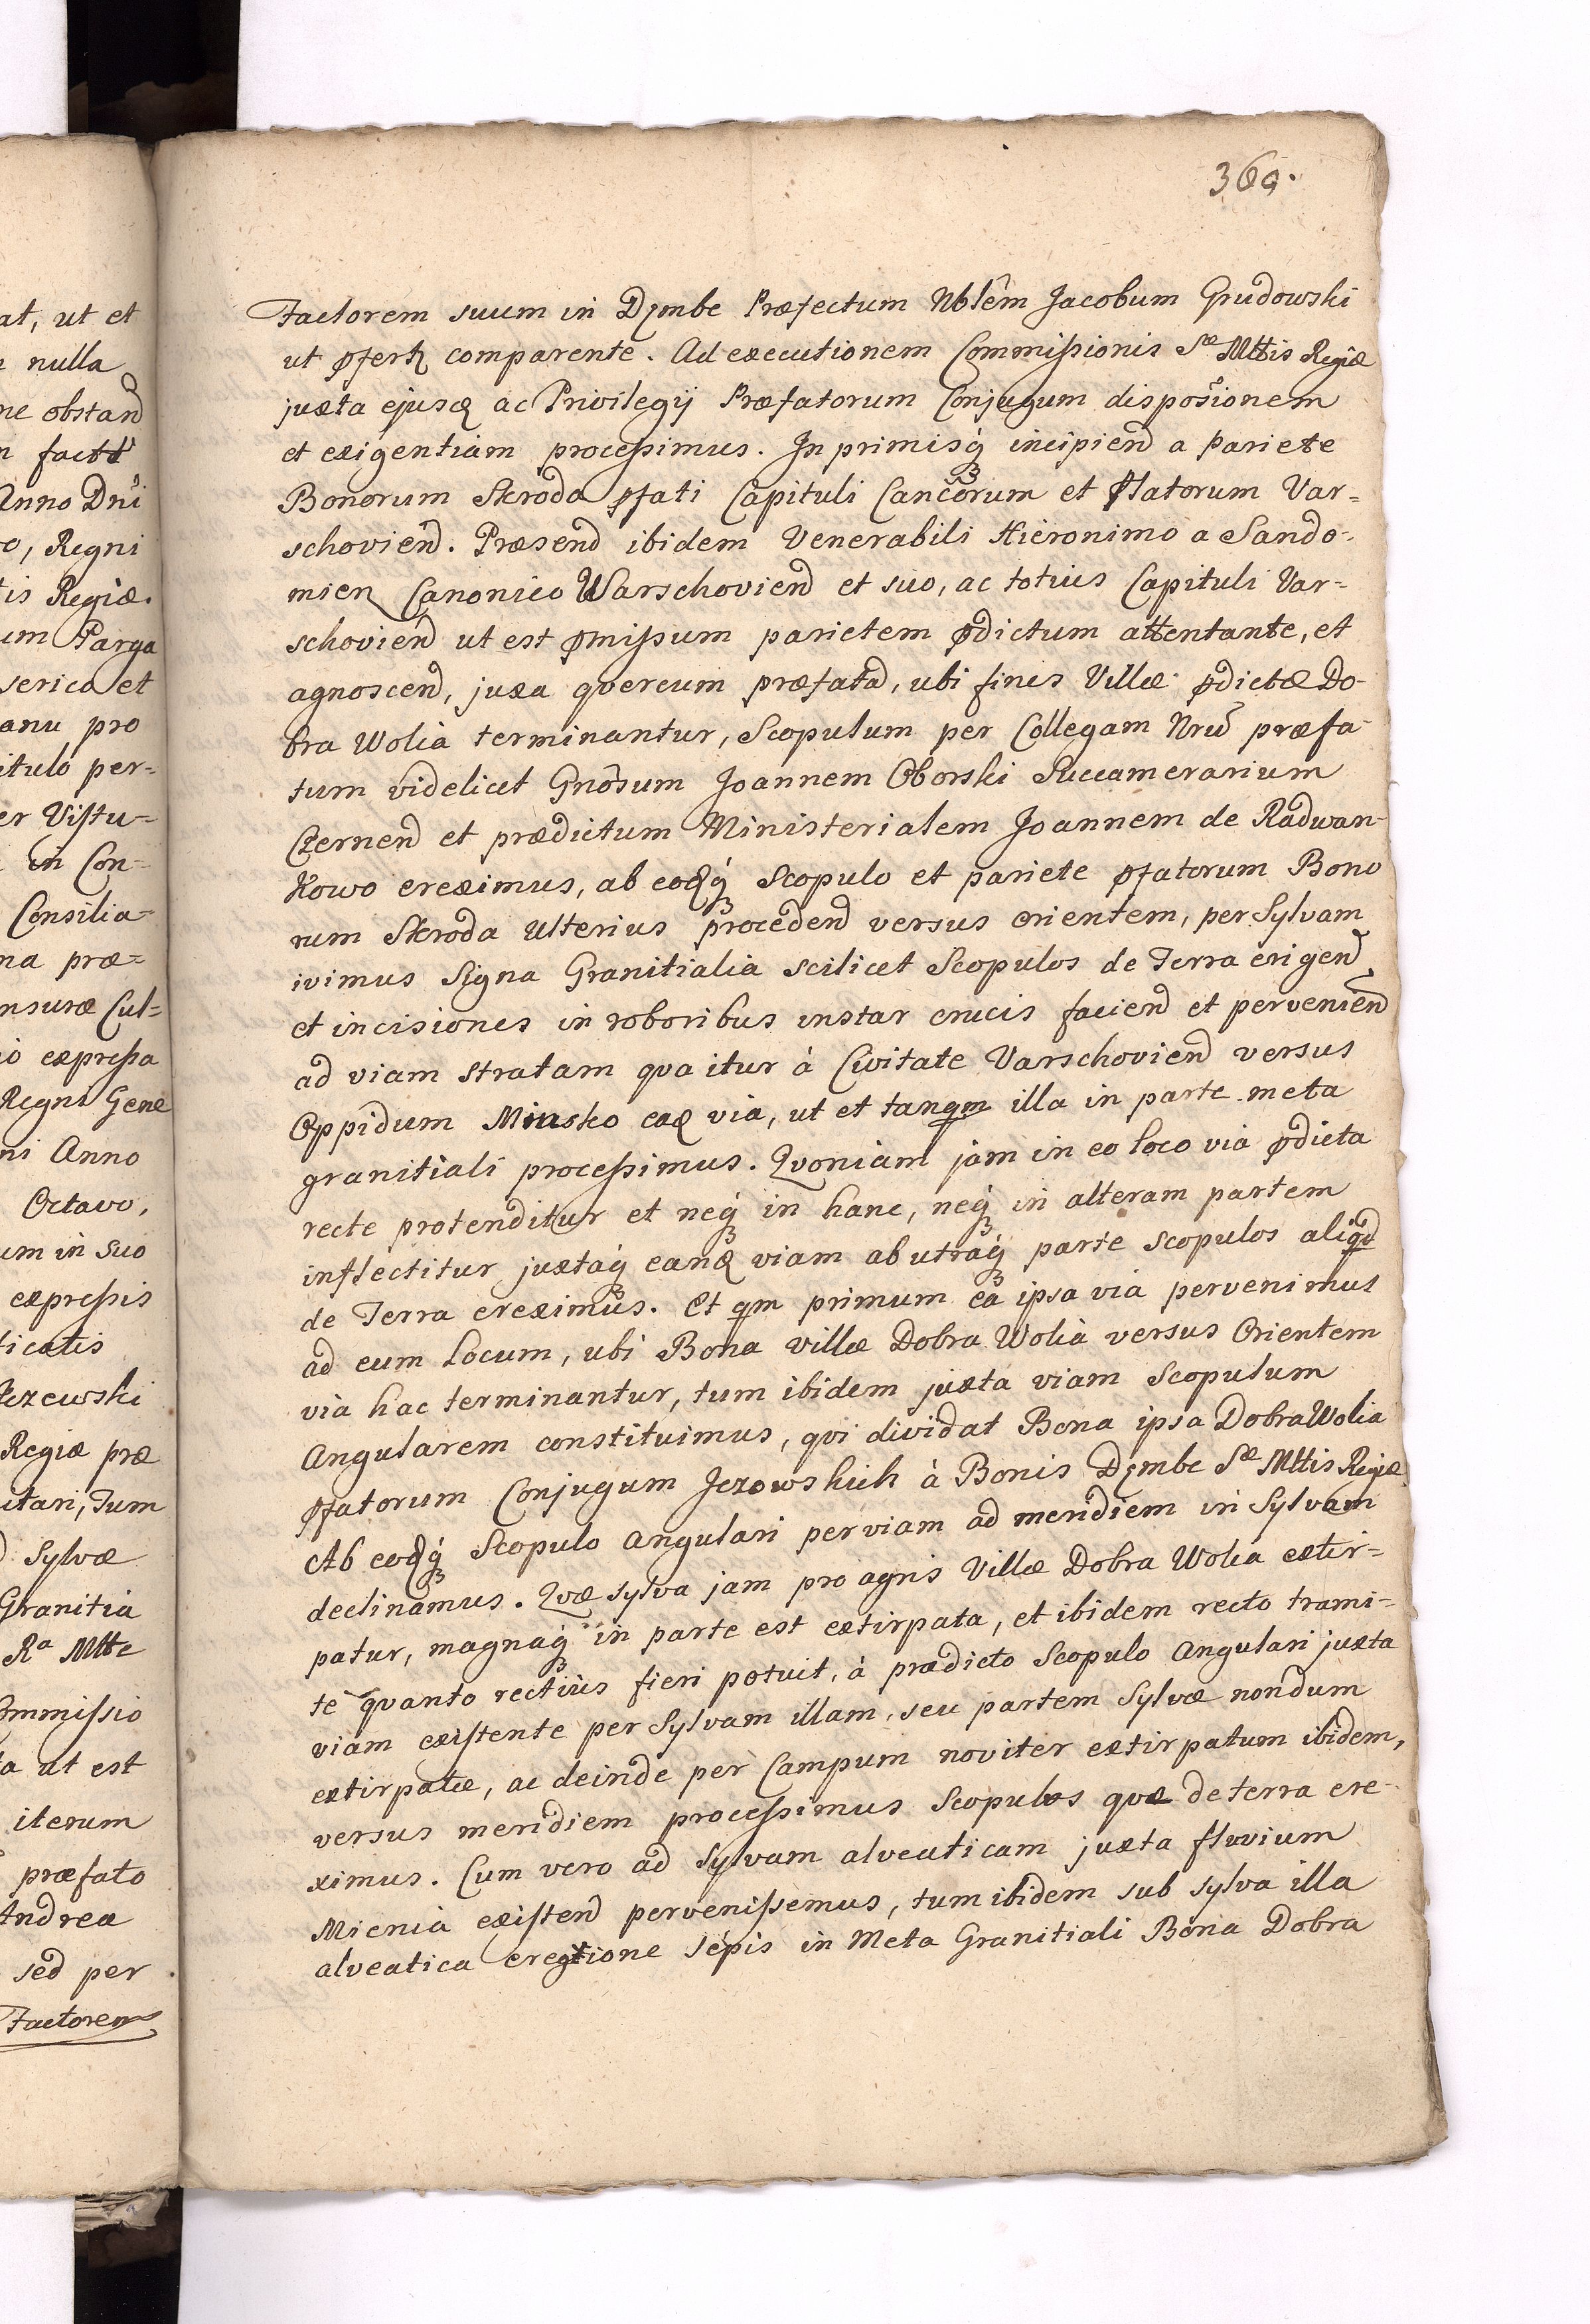 at, ut et
nulla
ne obstand
n factt
Anno Dni
o, Regni
tis Regiæ.
um Parga
serica et
anu pro
itulo per=
er Vistu=
in Con=
Consilia=
na præ=
nsuræ Cul=
io expressa
Regni Gene
ni Anno
Octavo,
um in suo
expressis
ficatis
Jezewski
Regiæ præ
itari, Tum
Sylvæ
Granitia
Rª Mtte
ommissio
ta ut est
iterum
præfato
Andrea
sed per
Factorem
369.
Factorem suum in Dymbe Præfectum Nblêm Jacobum Grudowski
ut pfertz comparente. Ad executionem Commissionis Sæ Mttis Regiæ
juxta ejusq ac Privilegij Præfatorum Conjugum disposiõnem
et exigentiam processimus. In primisq́ incipiend a Pariete
Bonorum Skroda pfati Capituli Cancorum et Plłatorum Var=
schoviend. Præsend ibidem Venerabili Hieronimo a Sando-
mierz Canonico Warschoviend et suo, ac totius Capituli Var=
schoviend ut est pmissum parietem pdictum attentante, et
agnoscend, juxa qvercum præfatd, ubi fines Villæ pdictæ Do-
bra Wolia terminantur, Scopulum per Collegam Nrũ præfa-
tum videlicet Gnosum Joannem Oborski Succamerarium
Czernend et prædictum Ministerialem Joannem de Radwan-
kowo ereximus, ab eodq́ Scopulo et pariete pfatorum Bono
rum Skroda Ulterius procedend versus orientem, per Sylvam
ivimus Signa Granitialia scilicet Scopulos de Terra erigend
et incisiones in roboribus instar crucis faciend et perveniend
ad viam stratam qva itur à Civitate Varschoviend versus
Oppidum Minsko eaq via, ut et tanqm illa in parte meta
granitiali processimus. Qvoniam jam in eo loco via pdicta
recte protenditur et neq́ in hanc, neq́ in alteram partem
inflectitur juxtaq́ eanq viam ab utraq́ parte scopulos aliqd
de Terra ereximus. Et qm primum ea ipsa via pervenimus
ad eum Locum, ubi Bona villæ Dobra Wolia versus Orientem
via hac terminantur, tum ibidem juxta viam Scopulum
Angularem constituimus, qvi dividat Bona ipsa Dobra Wolia
pfatorum Conjugum Jezowskich à Bonis Dymbe Sæ Mttis Regiæ
Ab eodq́ Scopulo Angulari per viam ad meridiem in Sylvam
declinamus. Qvæ sylva jam pro agris Villæ Dobra Wolia extir=
patur, magnaq́ in parte est extirpata, et ibidem recto trami=
te qvanto rectius fieri potuit, à prædicto Scopulo Angulari juxta
viam existente per Sylvam illam, seu partem Sylvæ nondum
extirpatæ, ac deinde per Campum noviter extirpatum ibidem,
versus meridiem processimus Scopulos qvæ de terra ere-
ximus. Cum vero ad sylvam alveaticam juxta fluvium
Mienia existend pervenissemus, tum ibidem sub sylva illa
alveatica eregtione sepis in Meta Granitiali Bona Dobra